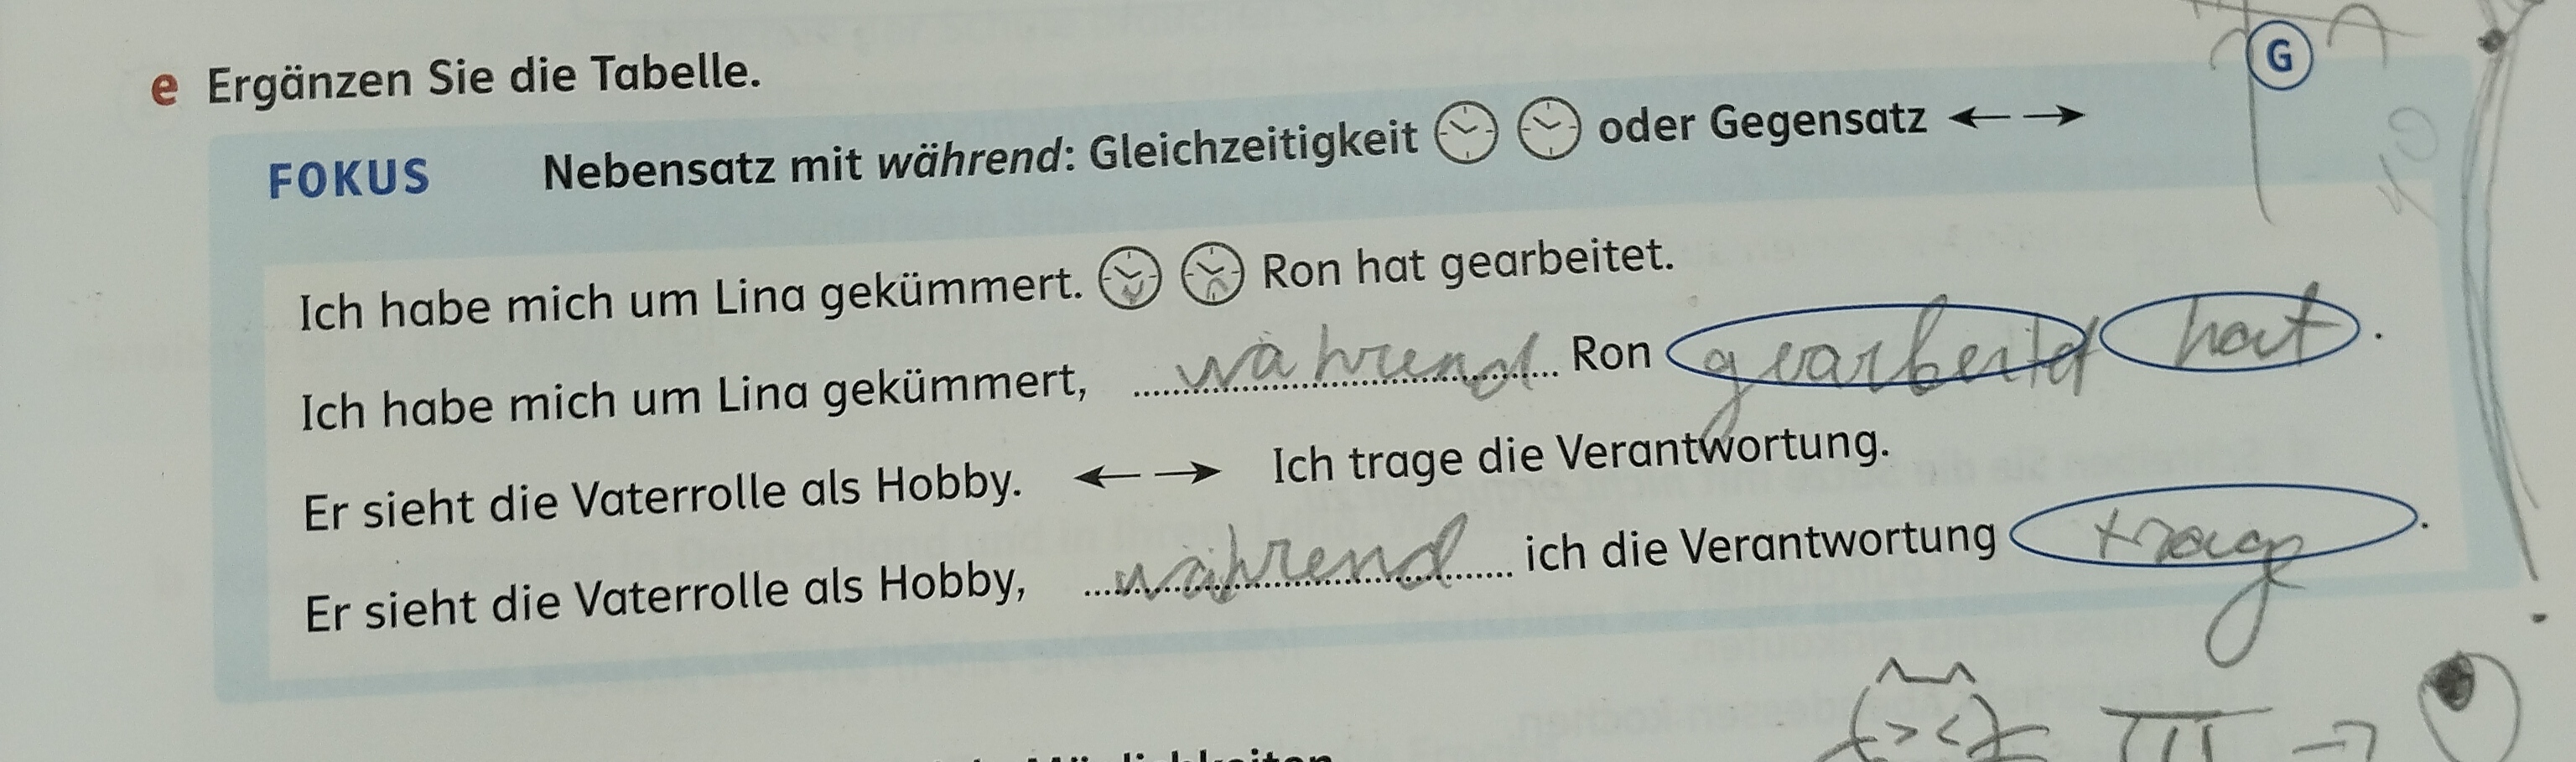 e Ergänzen Sie die Tabelle.
G
FOKUS Nebensatz mit während: Gleichzeitigkeit oder Gegensatz ← →
Ich habe mich um Lina gekümmert. Ron hat gearbeitet.
Ich habe mich um Lina gekümmert, während Ron gearbeitet hat.
Er sieht die Vaterrolle als Hobby. ← → Ich trage die Verantwortung.
Er sieht die Vaterrolle als Hobby, während ich die Verantwortung trage.